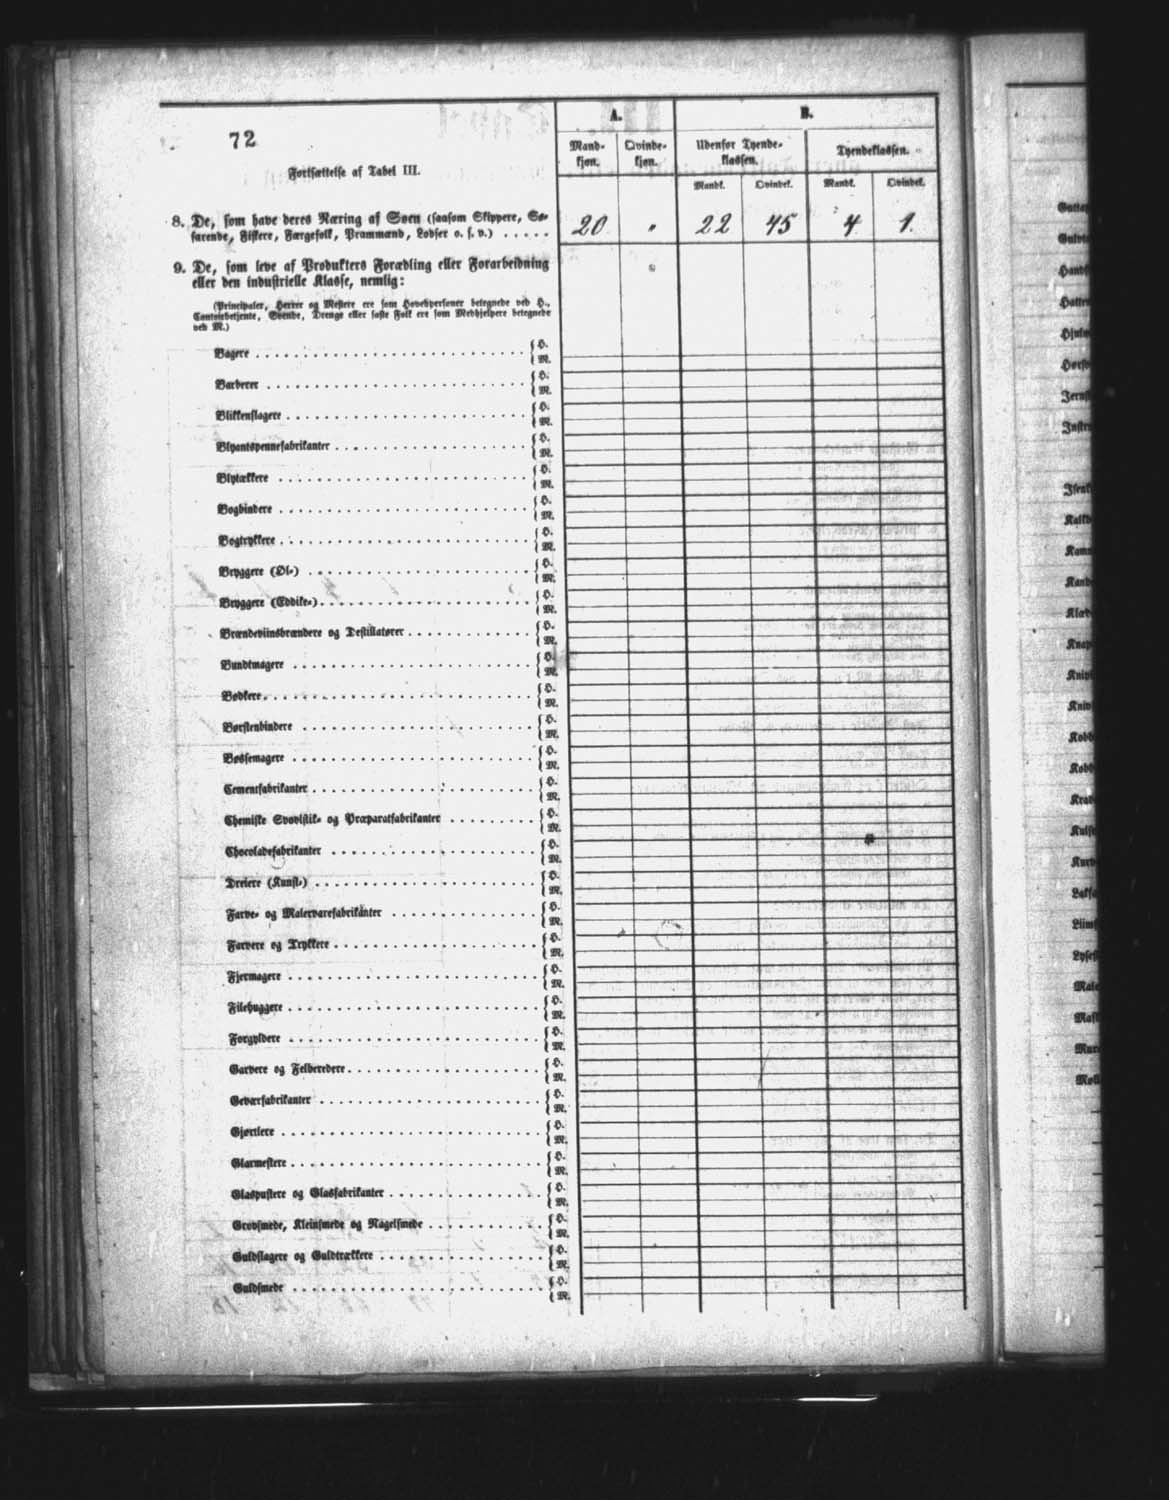 72
Fortsættelse af Tabel III.
A. B.
Mandkjøn. Qvindekjøn. Udenfor Tyendeklassen. Tyendeklassen.
Mandk. Qvindek. Mandk. Qvindek.
8. De, som have deres Næring af Søen (saasom Skippere, Sø-
farende, Fiskere, Færgefolk, Prammænd, Lodser o. s. v.) ..... 20 " 22 45 4 1.
9. De, som leve af Produkters Forædling eller Forarbeidning
eller den industrielle Klasse, nemlig:
(Principaler, Herrer og Mestere ere som Hovedpersoner betegnede ved H.,
Contoirbetjente, Svende, Drenge eller faste Folk ere som Medhjelpere betegnede
ved M.)
Bagere { H. M.
Barberer { H. M.
Blikkenslagere { H. M.
Blyantspennefabrikanter { H. M.
Blytækkere { H. M.
Bogbindere { H. M.
Bogtrykkere { H. M.
Bryggere (Øl-) { H. M.
Bryggere (Eddike-) { H. M.
Brændeviinsbrændere og Destillatører { H. M.
Bundtmagere { H. M.
Bødkere { H. M.
Børstenbindere { H. M.
Bøssemagere { H. M.
Cementfabrikanter { H. M.
Chemiske Svovlstik- og Præparatfabrikanter { H. M.
Chocoladefabrikanter { H. M.
Dreiere (Kunst-) { H. M.
Farve- og Malervarefabrikanter { H. M.
Farvere og Trykkere { H. M.
Fjermagere { H. M.
Filehuggere { H. M.
Forgyldere { H. M.
Garvere og Felberedere { H. M.
Geværfabrikanter { H. M.
Gjørtlere { H. M.
Glarmestere { H. M.
Glaspustere og Glasfabrikanter { H. M.
Grovsmede, Kleinsmede og Nagelsmede { H. M.
Guldslagere og Guldtrækkere { H. M.
Guldsmede { H. M.